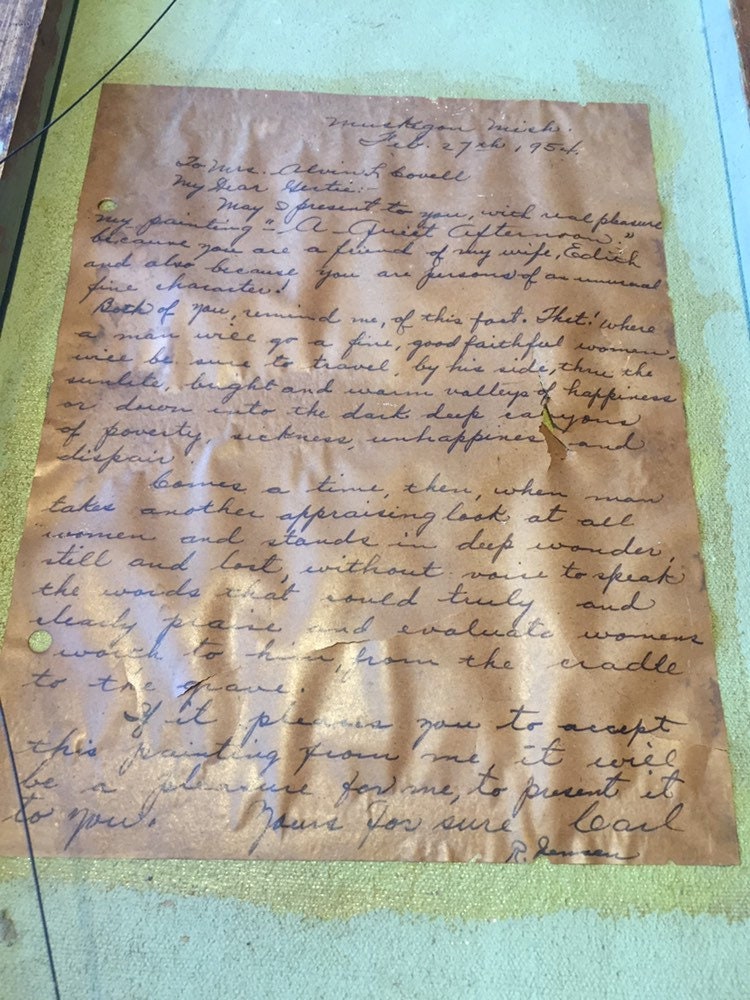 Muskegon Mich.
Feb. 27th, 1954.
To Mrs. Alvin L Covell
My Dear Gertie:-
May I present to you, with real pleasure
my painting "A - Quiet Afternoon."
because you are a friend of my wife, Edith
and also because you are persons of an unusual
fine character!
Both of you, remind me, of this fact. That! where
a man will go a fine, good faithful women,
will be sure to travel, by his side, thru the
sunlite, bright and warm valleys of happiness
or down into the dark deep canyons
of poverty, sickness, unhappiness and
dispair.
Comes a time, then, when man
takes another appraising look, at all
women and stands in deep wonder,
still and lost, without voice to speak
the words that could truly and
clearly praise and evaluate womens
worth to him, from the cradle
to the grave.
If it pleases you to accept
this painting from me, it will
be a pleasure for me, to present it
to you. Yours for sure Carl
R. Jensen